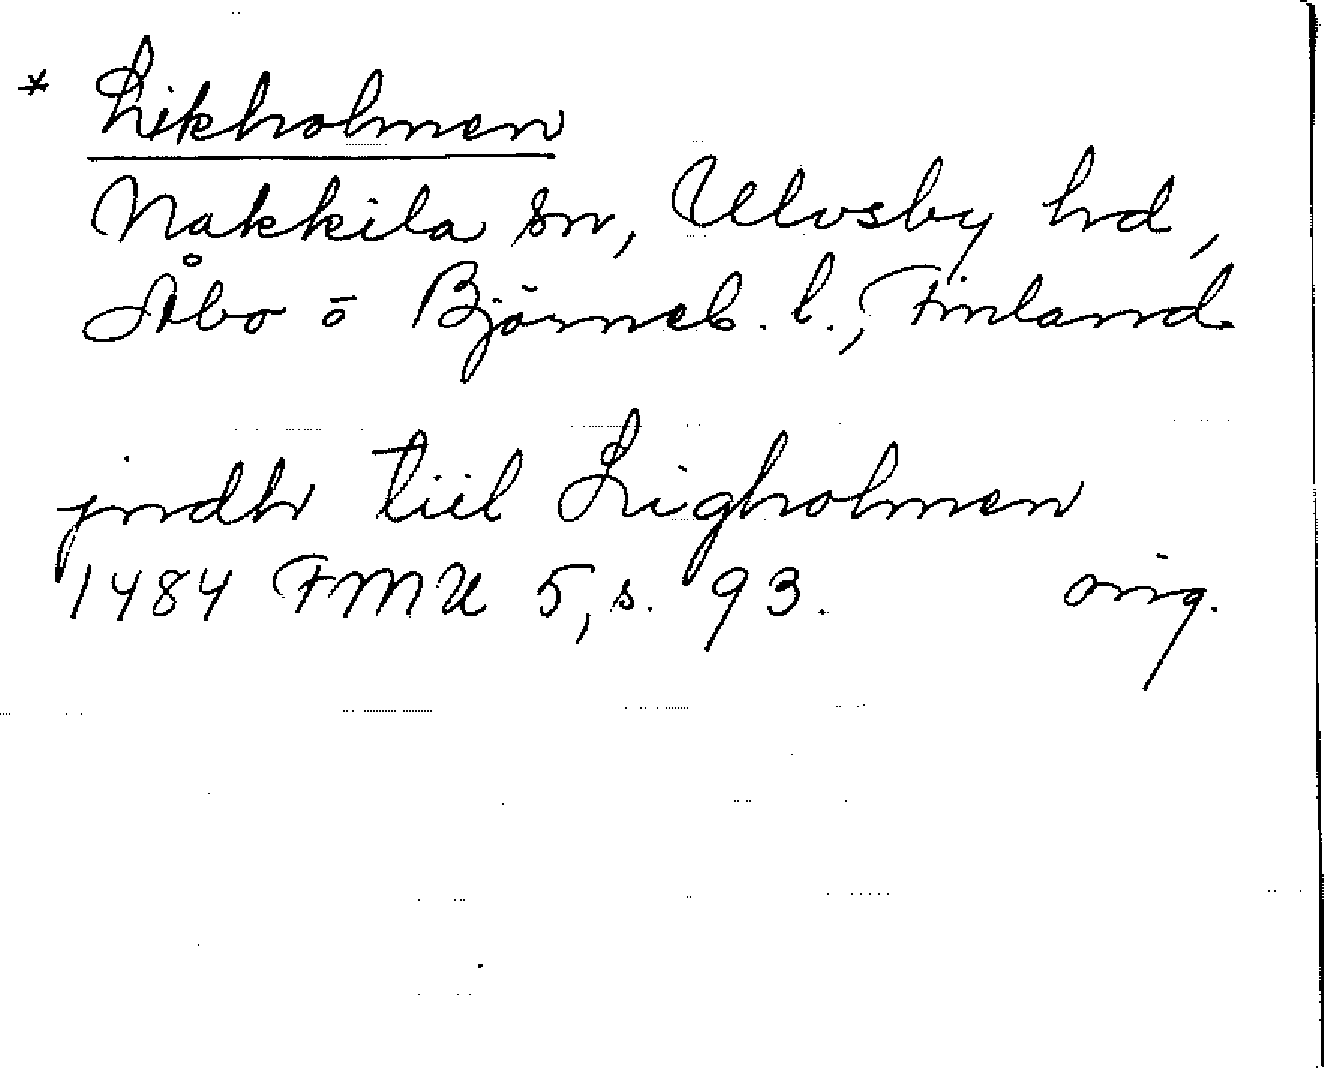 * Likholmen
Nakkila sn, Ulvsby hd,
Åbo o Björneb. l., Finland
jndh tiil Ligholmen
1484 FMU 5, s. 93. orig.